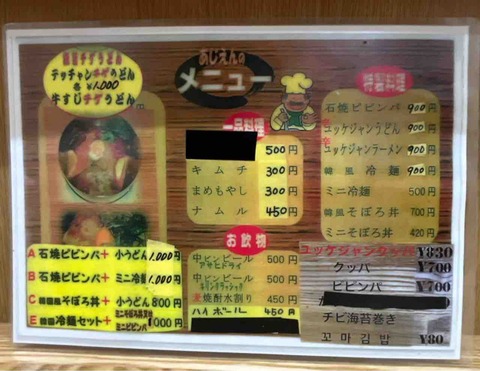 テッチャンチゲうどん
各 ¥1,000
牛すじチゲうどん
A 石焼ビビンパ+ 小うどん 1,000円
B 石焼ビビンパ+ ミニ冷麺 1,000円
C 韓国風そぼろ丼+ 小うどん 800円
E 韓国冷麺セット+ ミニそぼろ丼又は ミニビビンパ 1,000円
あじえんの
メニュー
一品料理
500円
キムチ 300円
まめもやし 300円
ナムル 450円
お飲物
中ビンビール 500円
アサヒドライ
中ビンビール 500円
キリンクラシック
麦焼酎水割り 450円
ハイボール 450円
特製料理
石焼ビビンパ 900円
ユッケジャンうどん 900円
ユッケジャンラーメン 900円
韓風冷麺 900円
ミニ冷麺 500円
韓風そぼろ丼 700円
ミニそぼろ丼 420円
ユッケジャンクッパ ¥830
クッパ ¥700
ビビンパ ¥700
チビ海苔巻き
꼬마김밥 ¥80